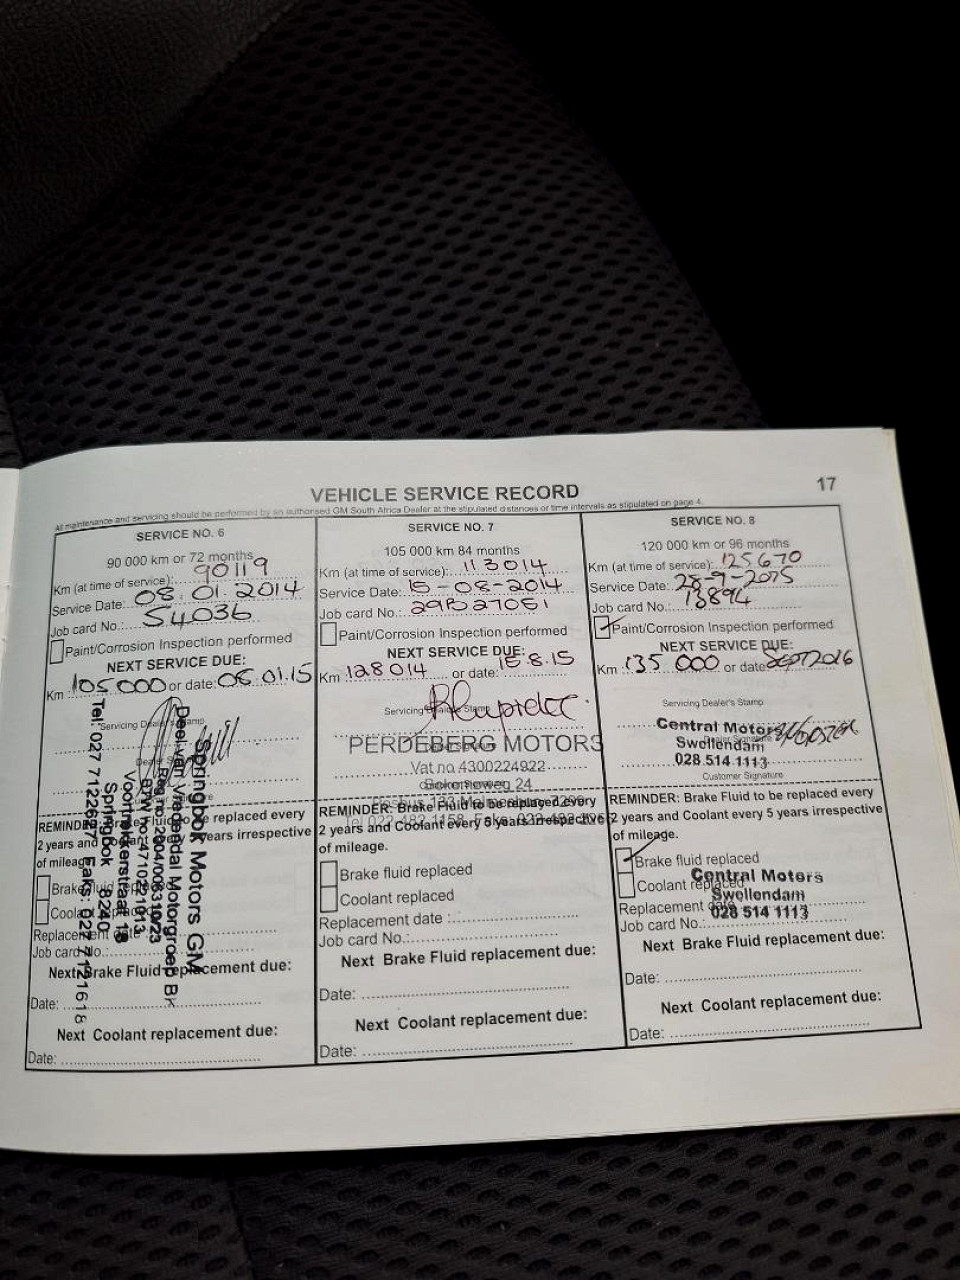 17
VEHICLE SERVICE RECORD
All maintenance and servicing should be performed by an authorised GM South Africa Dealer at the stipulated distances or time intervals as stipulated on page 4.
SERVICE NO. 6
90 000 km or 72 months
Km (at time of service): 90119
Service Date: 08.01.2014
Job card No.: 54036
Paint/Corrosion Inspection performed
NEXT SERVICE DUE:
Km 105 000 or date: 08.01.15
Servicing Dealer's Stamp
Springbok Motors GM
Deel van Vredendal Motorgroep Bk
Reg no: 2004/006310/23
BTW no: 4710221013
Voortrekkerstraat 18
Springbok 8240
Tel: 027 7122627 Faks: 027 7121618
REMINDER: Brake Fluid to be replaced every
2 years and Coolant every 5 years irrespective
of mileage.
Brake fluid replaced
Coolant replaced
Replacement date
Job card No.:
Next Brake Fluid replacement due:
Date:
Next Coolant replacement due:
Date:
SERVICE NO. 7
105 000 km 84 months
Km (at time of service): 113014
Service Date: 15-08-2014
Job card No.: 29B27051
Paint/Corrosion Inspection performed
NEXT SERVICE DUE:
Km 128 014 or date: 15.8.15
Servicing Dealer's Stamp
PERDEBERG MOTORS
Vat no 4300224922
REMINDER: Brake Fluid to be replaced every
2 years and Coolant every 5 years irrespective
of mileage.
Brake fluid replaced
Coolant replaced
Replacement date :
Job card No.:
Next Brake Fluid replacement due:
Date:
Next Coolant replacement due:
Date:
SERVICE NO. 8
120 000 km or 96 months
Km (at time of service): 125670
Service Date: 28-9-2015
Job card No.: 13894
Paint/Corrosion Inspection performed
NEXT SERVICE DUE:
Km 135 000 or date: SEPT 2016
Servicing Dealer's Stamp
Central Motors
Dealer Signature
Swellendam
028 514 1113
Customer Signature
REMINDER: Brake Fluid to be replaced every
2 years and Coolant every 5 years irrespective
of mileage.
Brake fluid replaced
Coolant replaced
Central Motors
Swellendam
028 514 1113
Replacement date
Job card No.:
Next Brake Fluid replacement due:
Date:
Next Coolant replacement due:
Date: